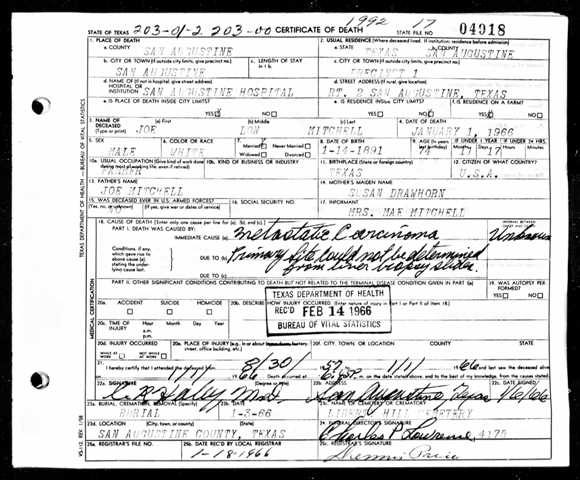 1992 17
STATE OF TEXAS 203-01-2 203-00 CERTIFICATE OF DEATH STATE FILE NO. 04918
1. PLACE OF DEATH
2. USUAL RESIDENCE (Where deceased lived. If institution: residence before admission)
a. COUNTY SAN AUGUSTINE
a. STATE TEXAS b. COUNTY SAN AUGUSTINE
b. CITY OR TOWN (If outside city limits, give precinct no.) c. LENGTH OF STAY in 1 b.
c. CITY OR TOWN (If outside city limits, give precinct no.)
SAN AUGUSTINE
PRECINCT 1
d. NAME OF (If not in hospital, give street address) HOSPITAL OR INSTITUTION SAN AUGUSTINE HOSPITAL
d. STREET ADDRESS (If rural, give location)
RT. 2 SAN AUGUSTINE, TEXAS
e. IS PLACE OF DEATH INSIDE CITY LIMITS?
YES NO
e. IS RESIDENCE INSIDE CITY LIMITS?
YES NO
f. IS RESIDENCE ON A FARM?
YES NO
3. NAME OF DECEASED (Type or print) (a) First (b) Middle (c) Last
JOE DON MITCHELL
4. DATE OF DEATH
JANUARY 1, 1966
5. SEX
MALE
6. COLOR OR RACE
WHITE
7. Married Never Married
Widowed Divorced
8. DATE OF BIRTH
1-14-1891
9. AGE (In years last birthday)
74
IF UNDER 1 YEAR IF UNDER 24 HRS.
Months Days Hours Minutes
10a. USUAL OCCUPATION (Give kind of work done
FARMER
10b. KIND OF BUSINESS OR INDUSTRY
11. BIRTHPLACE (State or foreign country)
TEXAS
12. CITIZEN OF WHAT COUNTRY?
U.S.A.
13. FATHER'S NAME
JOE MITCHELL
14. MOTHER'S MAIDEN NAME
SUSAN DRAWHORN
15. WAS DECEASED EVER IN U.S. ARMED FORCES?
(Yes, no, or unknown) (If yes, give war or dates of service)
NO
16. SOCIAL SECURITY NO.
17. INFORMANT
MRS. MAE MITCHELL
18. CAUSE OF DEATH [Enter only one cause per line for (a), (b), and (c).]
PART I. DEATH WAS CAUSED BY:
IMMEDIATE CAUSE (a) Metastatic Carcinoma Unknown
Conditions, if any, which gave rise to above cause (a), stating the underlying cause last.
DUE TO (b) Primary site could not be determined
DUE TO (c) from liver biopsy slides.
PART II. OTHER SIGNIFICANT CONDITIONS CONTRIBUTING TO DEATH BUT NOT RELATED TO THE TERMINAL DISEASE CONDITION GIVEN IN PART I(a)
19. WAS AUTOPSY PERFORMED?
YES NO
20a. ACCIDENT SUICIDE HOMICIDE
20b. DESCRIBE HOW INJURY OCCURRED. (Enter nature of injury in Part I or Part II of item 18.)
TEXAS DEPARTMENT OF HEALTH
REC'D FEB 14 1966
BUREAU OF VITAL STATISTICS
20c. TIME OF INJURY Hour Month Day Year
20d. INJURY OCCURRED
WHILE AT WORK NOT WHILE AT WORK
20e. PLACE OF INJURY (e.g., in or about home, farm, factory, street, office building, etc.)
20f. CITY, TOWN, OR LOCATION COUNTY STATE
21. I hereby certify that I attended the deceased from 8/30/ 57 1/1/ 66
22a. SIGNATURE (Degree or title)
C R Haley M.D.
22b. ADDRESS
San Augustine, Texas
22c. DATE SIGNED
1/6/66
23a. BURIAL, CREMATION, REMOVAL (Specify)
BURIAL
23b. DATE
1-3-66
23c. NAME OF CEMETERY OR CREMATORY
LIBERTY HILL CEMETERY
23d. LOCATION (City, town, or county) (State)
SAN AUGUSTINE COUNTY, TEXAS
24. FUNERAL DIRECTOR'S SIGNATURE
Charles P Lawrence 4175
25a. REGISTRAR'S FILE NO.
25b. DATE REC'D BY LOCAL REGISTRAR
1-18-1966
25c. REGISTRAR'S SIGNATURE
Dennis Price
TEXAS DEPARTMENT OF HEALTH — BUREAU OF VITAL STATISTICS
MEDICAL CERTIFICATION
VS-112 REV. 1/58